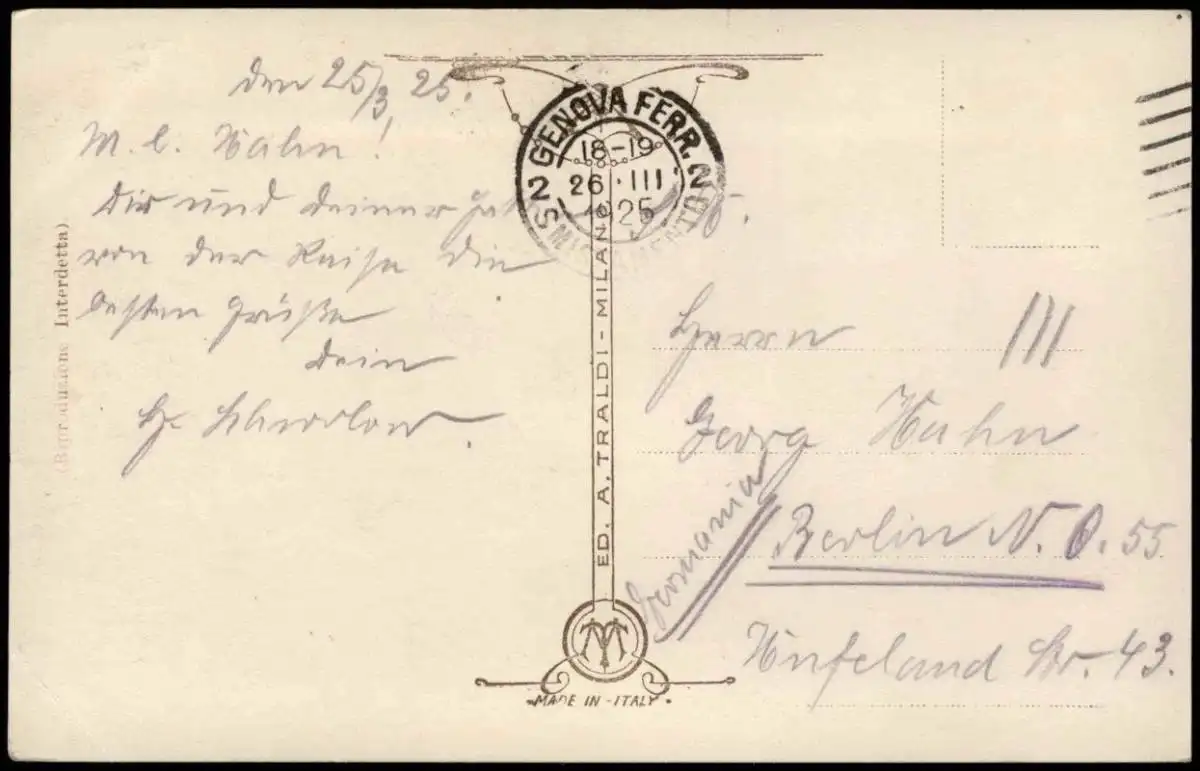 den 25/3 25.
M. l. Hahn!
Dir und deiner
von der Reise die
besten Grüße
Dein
(Riproduzione Interdetta)
GENOVA FERR.
2 2
18-19
26·III
1925
ED. A. TRALDI - MILANO
MADE IN ITALY
Herrn
Georg Hahn
Germania
Berlin N. O. 55
Hufeland Str. 43.